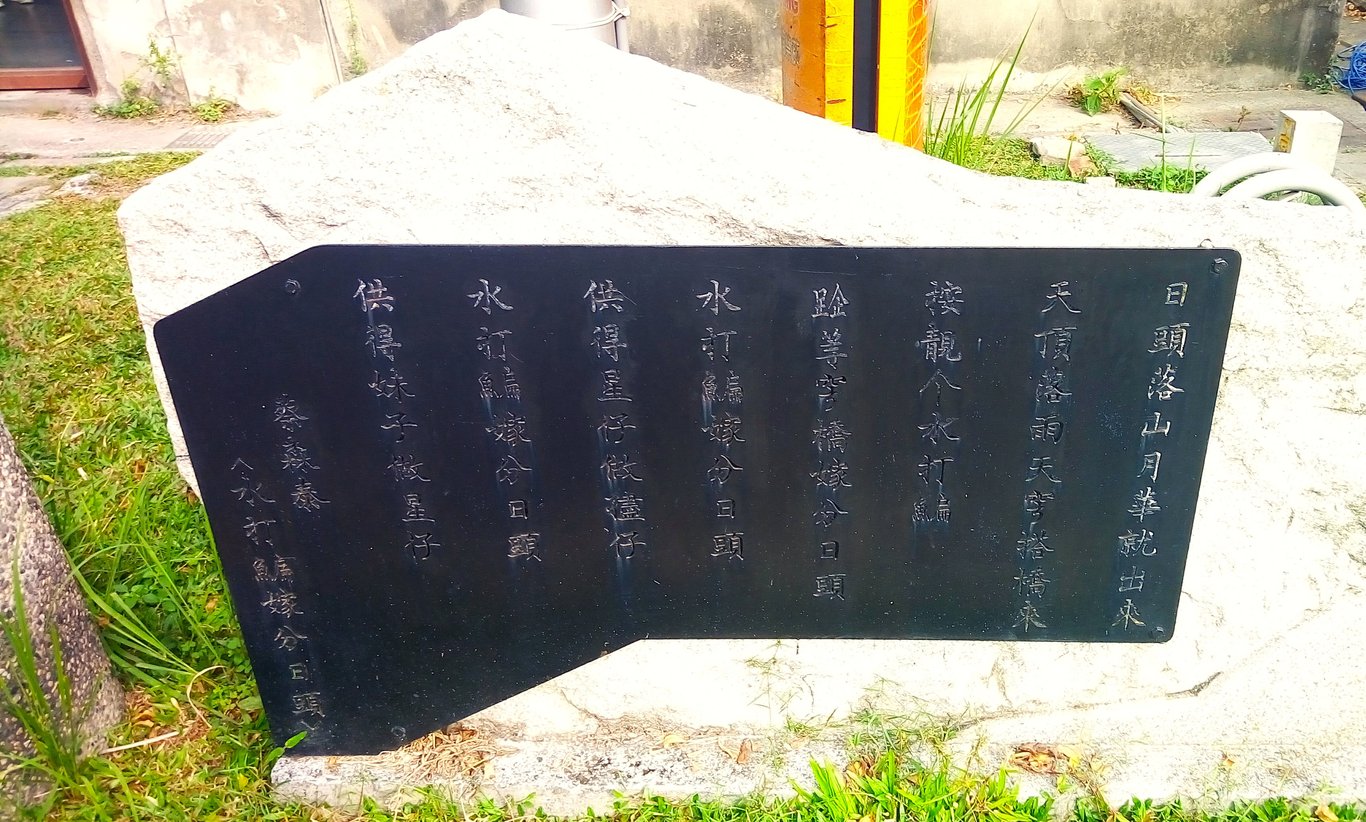 日頭落山月華就出來
天頂落雨天穹搭橋來
按靚个水打鯿
跈等穹橋嫁分日頭
水打鯿嫁分日頭
供得星仔做仔
水打鯿嫁分日頭
供得妹子做星仔
蔡森泰
〈水打鯿嫁分日頭〉